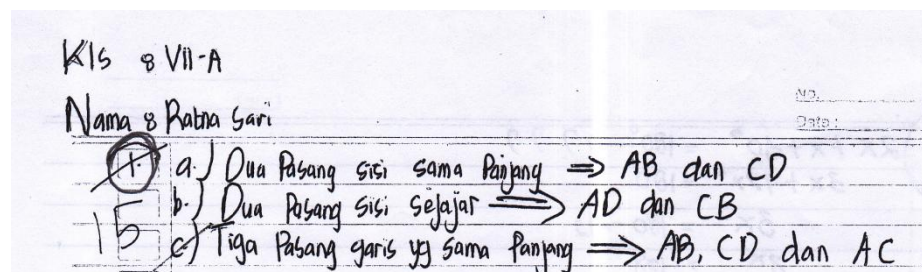 Kls : VII-A
Nama : Ratna Sari
No.
Date :
1. a.) Dua Pasang sisi sama Panjang ⇒ AB dan CD
b.) Dua Pasang sisi sejajar ⇒ AD dan CB
15 c.) Tiga Pasang garis yg sama Panjang ⇒ AB, CD dan AC